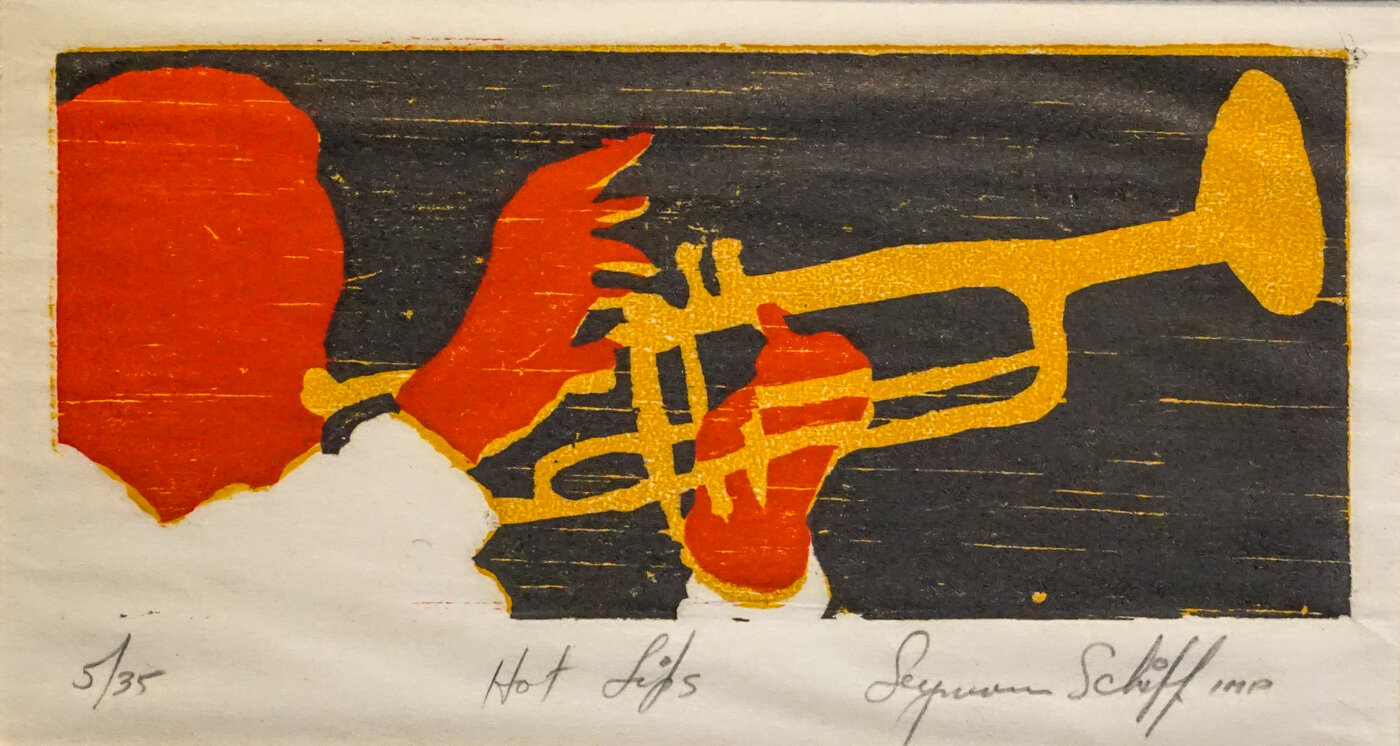 5/35 Hot Lips Seymour Schiff imp